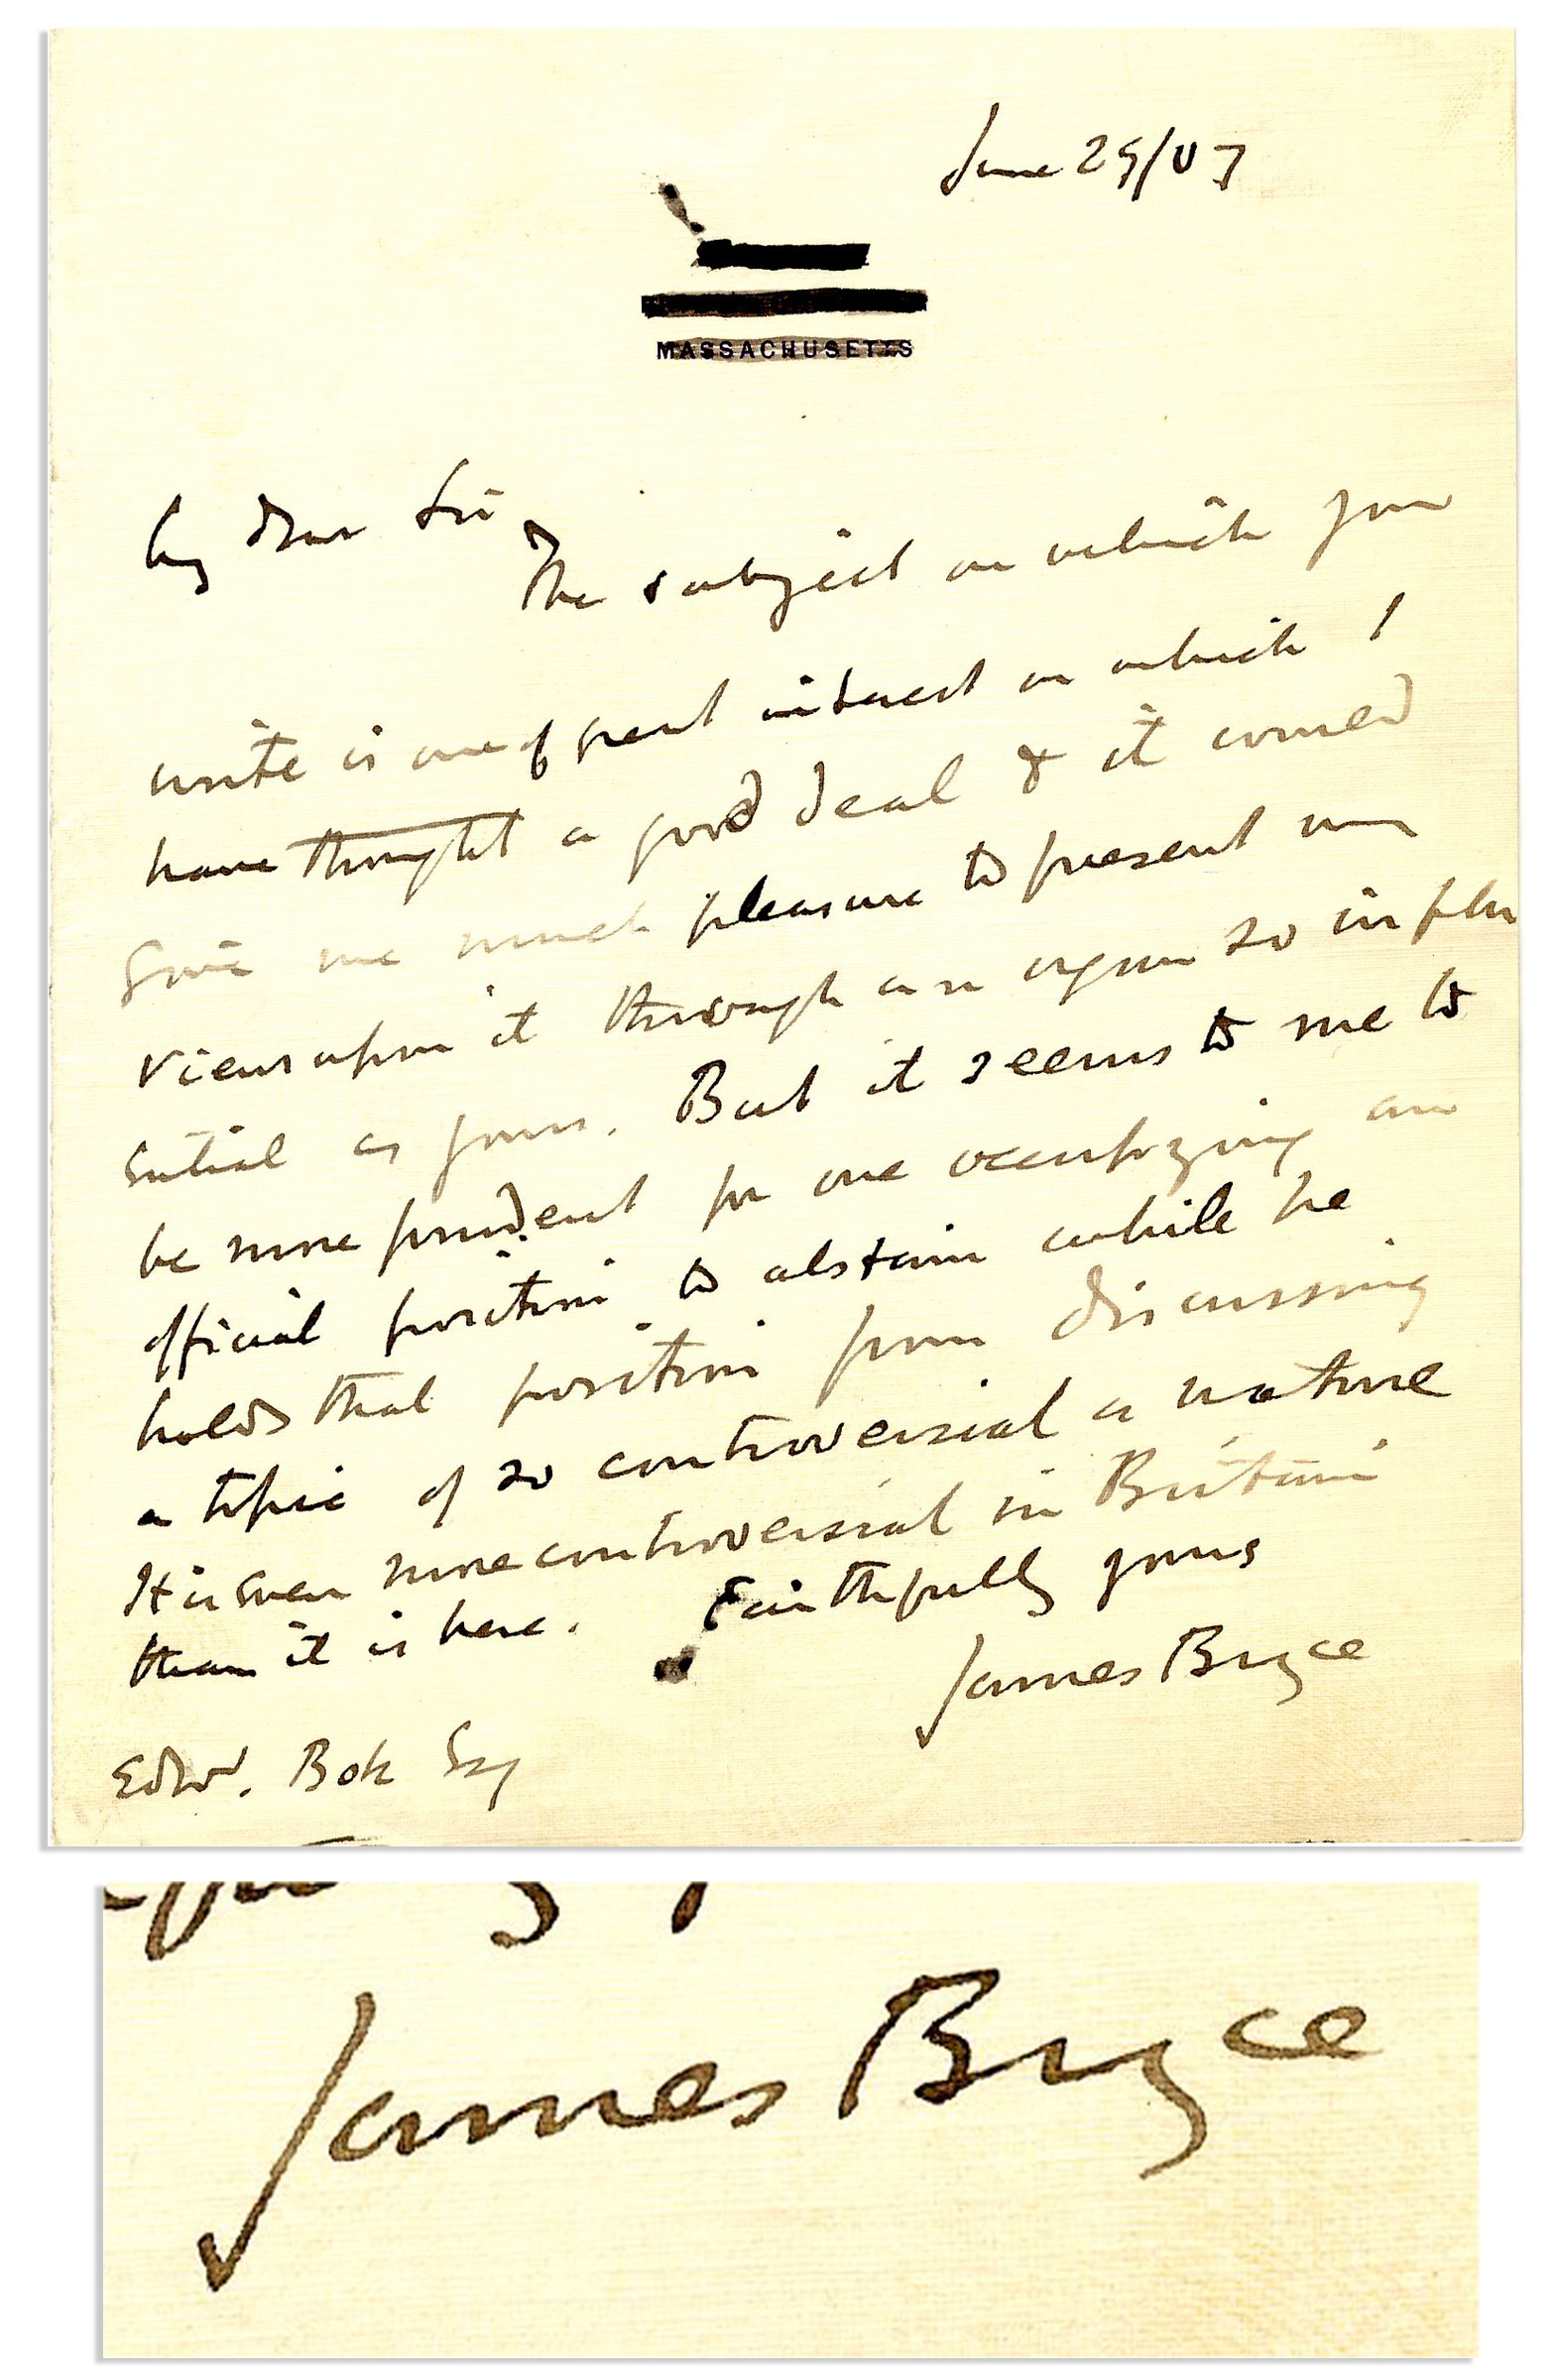 June 29/07
MASSACHUSETTS
My dear Sir
The subject on which you
write is one of great interest on which I
have thought a good deal & it would
give me much pleasure to present my
views upon it through an organ so influ
ential as yours. But it seems to me to
be more prudent for one occupying an
official position to abstain while he
holds that position from discussing
a topic of so controversial a nature
It is even more controversial in Britain
than it is here. Faithfully yours
James Bryce
Edw. Bok Esq
James Bryce